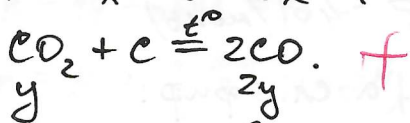 CO₂ + C =t°= 2CO. +
y 2y